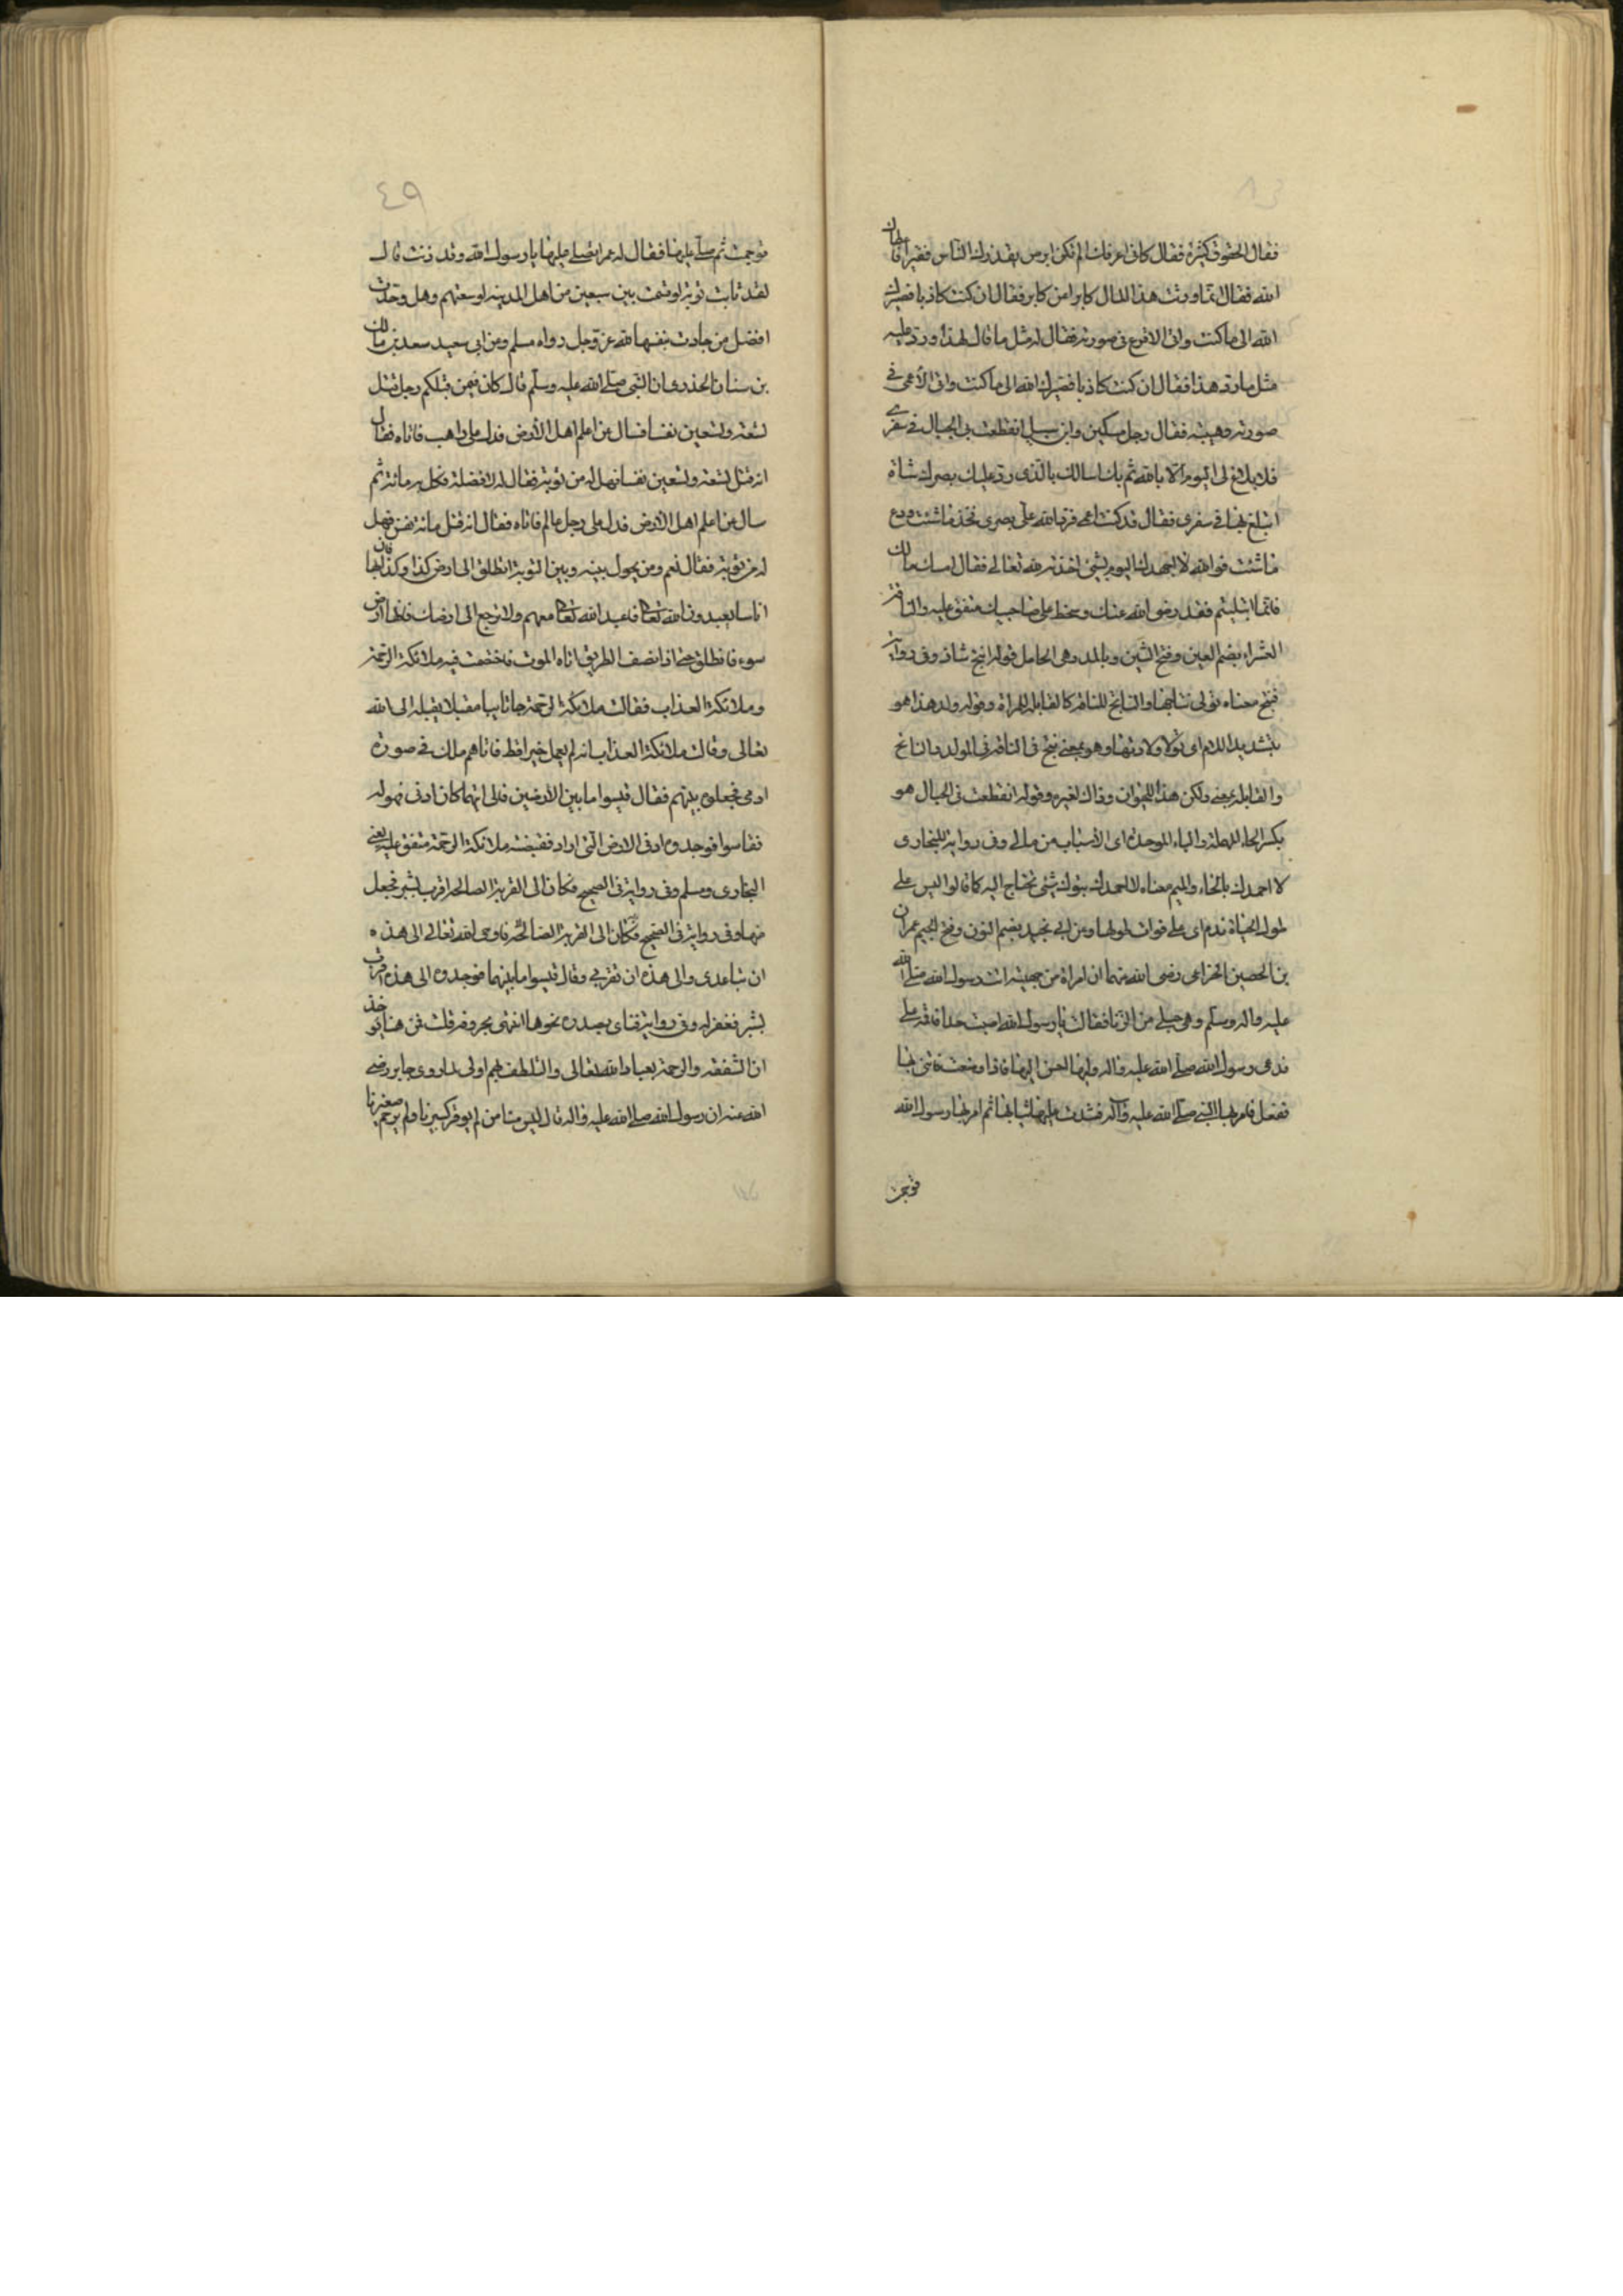 فقال الحقوق كثيرة فقال كانى اعرفك الم تكن ابرص يقذرك الناس فقيرا فاعطاك
الله فقال انما ورثت هذا المال كابرا من كابر فقال ان كنت كاذبا فصيرك
الله الى ما كنت واتى الاقرع فى صورته فقال له مثل ما قال لهذا ورد عليه
مثل ما رد هذا فقال ان كنت كاذبا فصيرك الله الى ما كنت واتى الأعمى فى
صورته وهيئته فقال رجل مسكين وابن سبيل انقطعت بى الحبال فى سفرى
فلا بلاغ لى اليوم الا بالله ثم بك اسالك بالذى رد عليك بصرك شاة
اتبلغ بها فى سفرى فقال قد كنت اعمى فرد الله على بصرى فخذ ما شئت ودع
ما شئت فوالله لا اجهدك اليوم بشئ اخذته لله تعالى فقال امسك مالك
فانما ابتليتم فقد رضى الله عنك وسخط على صاحبيك متفق عليه والناقة
العشراء بضم العين وفتح الشين وبالمد وهى الحامل قوله انتج شاذ وفى رواية
فنتج معناه تولى نتاجها والناتج للناقة كالقابلة للمراة وقوله ولد هذا هو
بتشديد اللام اى تولا ولادتها وهو بمعنى نتج فى الناقة فى المولد والناتج
والقابلة بمعنى ولكن هذا للحيوان وذاك لغيره وقوله انقطعت بى الحبال هو
بكسر الحاء المهملة والباء الموحدة اى الاسباب من مالى وفى رواية للبخارى
لا احمدك بالحاء والميم معناه لا احمدك بترك شئ تحتاج اليه كما قالوا ليس على
طول الحياة ندم اى على فوات طولها وعن ابى نجيد بضم النون وفتح الجيم عمران
بن الحصين الخزاعى رضى الله عنهما ان امراة من جهينة اتت رسول الله صلى الله
عليه واله وسلم وهى حبلى من الزنا فقالت يا رسول الله اصبت حدا فاقمه على
فدعى رسول الله صلى الله عليه واله وليها احسن اليها فاذا وضعت فاتنى بها
ففعل فامر بها النبى صلى الله عليه وآله فشدت عليها ثيابها ثم امر بها رسول الله
فرجمت
٤٩
فرجمت ثم صلى عليها فقال له عمر اتصلى عليها يا رسول الله وقد زنت قال
لقد تابت توبة لو قسمت بين سبعين من اهل المدينة لوسعتهم وهل وجدت
افضل من جادت بنفسها لله عز وجل رواه مسلم وعن ابى سعيد سعد بن مالك
بن سنان الخدرى ان النبى صلى الله عليه وسلم قال كان فيمن قبلكم رجل قتل
تسعة وتسعين نفسا فسال عن اعلم اهل الأرض فدل على راهب فاتاه فقال
انه قتل تسعة وتسعين نفسا فهل له من توبة فقال له لا فقتله فكمل به مائة ثم
سال عن اعلم اهل الأرض فدل على رجل عالم فاتاه فقال انه قتل مائة نفس فهل
له من توبة فقال نعم ومن يحول بينه وبين التوبة انطلق الى ارض كذا وكذا فان بها
اناسا يعبدون الله تعالى فاعبد الله تعالى معهم ولا ترجع الى ارضك فانها ارض
سوء فانطلق حتى اذا نصف الطريق اتاه الموت فاختصمت فيه ملائكة الرحمة
وملائكة العذاب فقالت ملائكة الرحمة جاء تايبا مقبلا بقلبه الى الله
تعالى وقالت ملائكة العذاب انه لم يعمل خيرا قط فاتاهم ملك فى صورة
ادمى فجعلوه بينهم فقال قيسوا ما بين الأرضين فالى ايتهما كان ادنى فهو له
فقاسوا فوجدوه ادنى الى الارض التى اراد فقبضته ملائكة الرحمة متفق عليه يعنى
البخارى ومسلم وفى رواية فى الصحيح فكان الى القرية الصالحة اقرب بشبر فجعل
منها وفى رواية فى الصحيح فكان الى القرية الصالحة فاوحى الله تعالى الى هذه
ان تباعدى والى هذه ان تقربى وقال قيسوا ما بينهما فوجدوه الى هذه اقرب
بشبر فغفر له وفى رواية فناى بصدره نحوها انتهى بحروفه قلت فمن هنا يوخذ
ان الشفقة والرحمة بعباد الله تعالى والتلطف بهم اولى لما روى جابر رضى
الله عنه ان رسول الله صلى الله عليه واله قال ليس منا من لم يوقر كبيرنا ولم يرحم صغيرنا